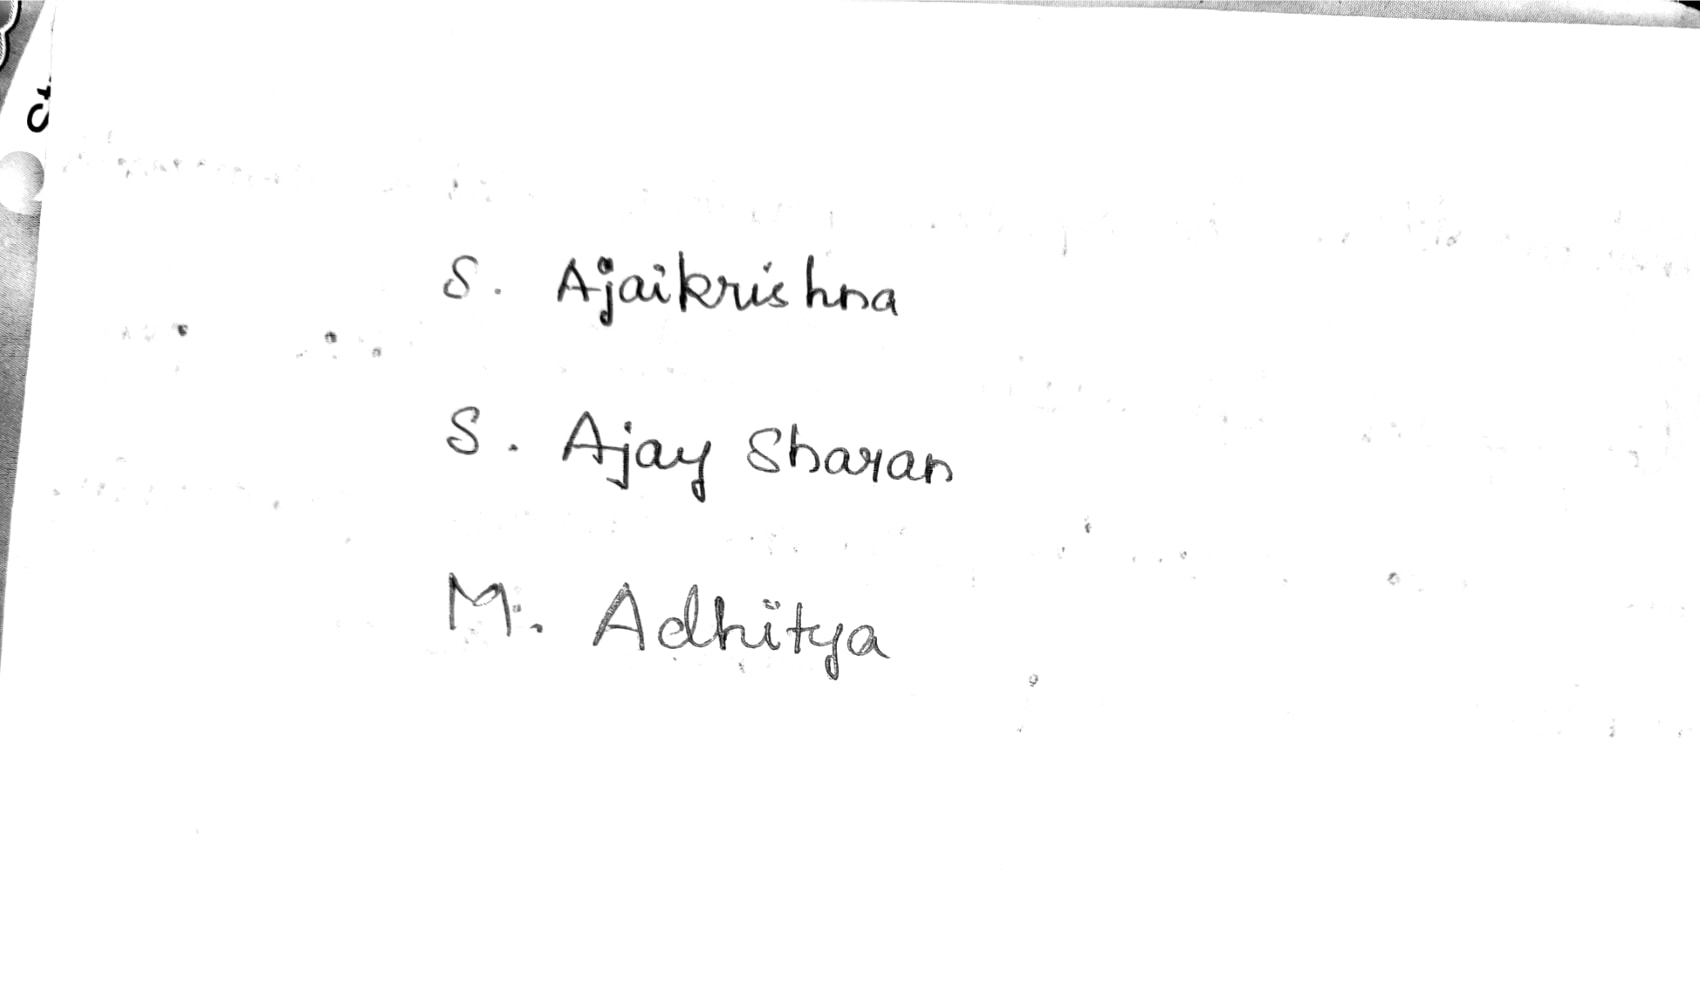 S. Ajaikrishna
S. Ajay Sharan
M. Adhitya